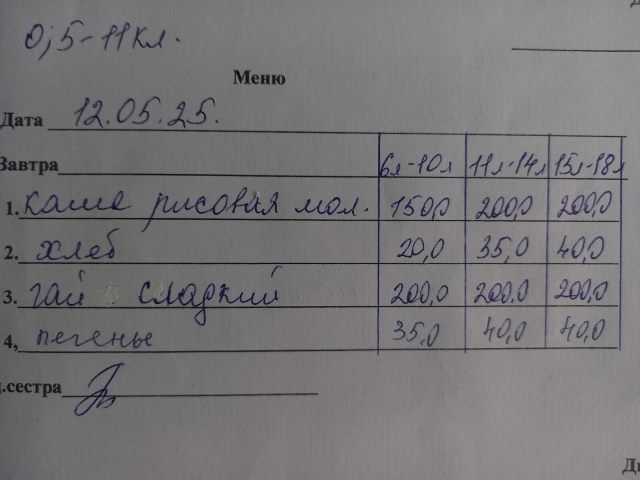 0,5-11кл.
Меню
Дата 12.05.25.
Завтра 6л-10л 11л-14л 15л-18л
1. каша рисовая мол. 150,0 200,0 200,0
2. хлеб 20,0 35,0 40,0
3. чай сладкий 200,0 200,0 200,0
4, печенье 35,0 40,0 40,0
д.сестра